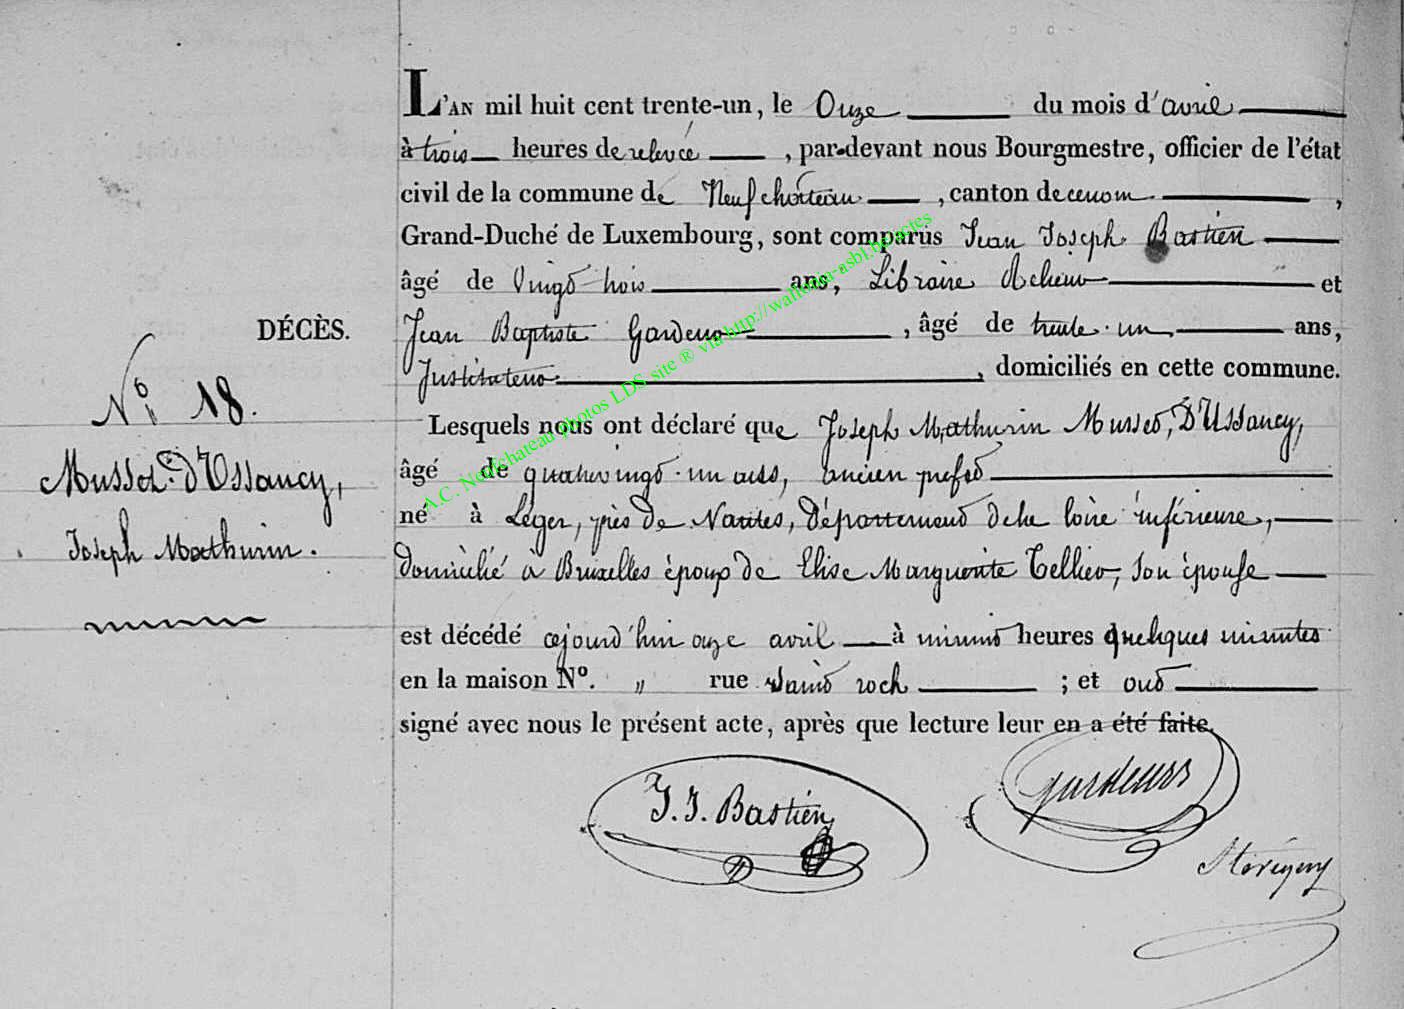 L'AN mil huit cent trente-un, le Onze du mois d'avril
à trois heures de relevée, par-devant nous Bourgmestre, officier de l'état
civil de la commune de Neufchateau, canton de cenom,
Grand-Duché de Luxembourg, sont comparus Jean Joseph Bastien
âgé de Vingt-trois ans, Libraire et
DÉCÈS.
Jean Baptiste, âgé de trente-un ans,
Instituteur, domiciliés en cette commune.
N° 18.
Lesquels nous ont déclaré que Joseph Mathurin Musset, D'Ussancy,
Musset d'Ussancy,
âgé de quatrevingt-un ans, ancien prefet
né à Léger, près de Nantes, département de la loire inférieure,
Joseph Mathurin.
domicilié à Bruxelles époux de Elise Marguerite Tellier, son épouse
est décédé cejourd'hui onze avril à minuit heures quelques minutes
en la maison N°. " rue saint roch ; et ont
signé avec nous le présent acte, après que lecture leur en a été faite.
J. J. Bastien
A.C. Neufchateau photos LDS site ® via http://wallonia-asbl.be/actes